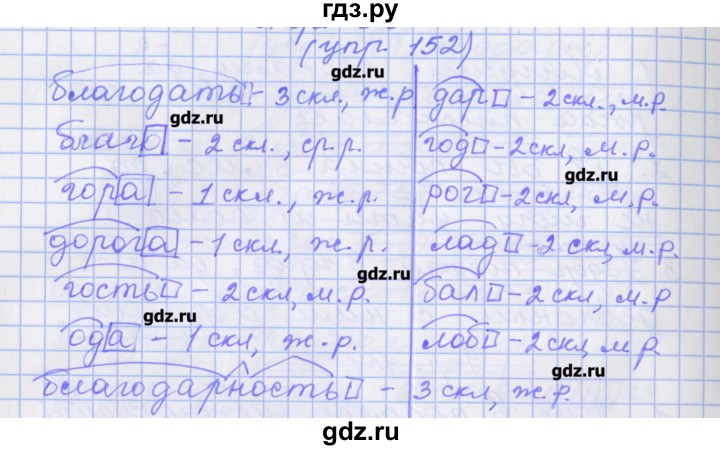 гдз.ру
(упр. 152)
благодать - 3 скл., ж.р
благо - 2 скл., ср.р.
гора - 1 скл., ж.р.
дорога - 1 скл, ж.р.
гость - 2 скл, м.р.
ода - 1 скл, ж.р.
дар - 2 скл., м.р.
год - 2 скл, м.р.
рог - 2 скл, м.р.
лад - 2 скл, м.р.
бал - 2 скл, м.р
лоб - 2 скл, м.р.
благодарность - 3 скл, ж.р.
gdz.ru
gdz.ru
gdz.ru
gdz.ru
gdz.ru
gdz.ru
gdz.ru
gdz.ru